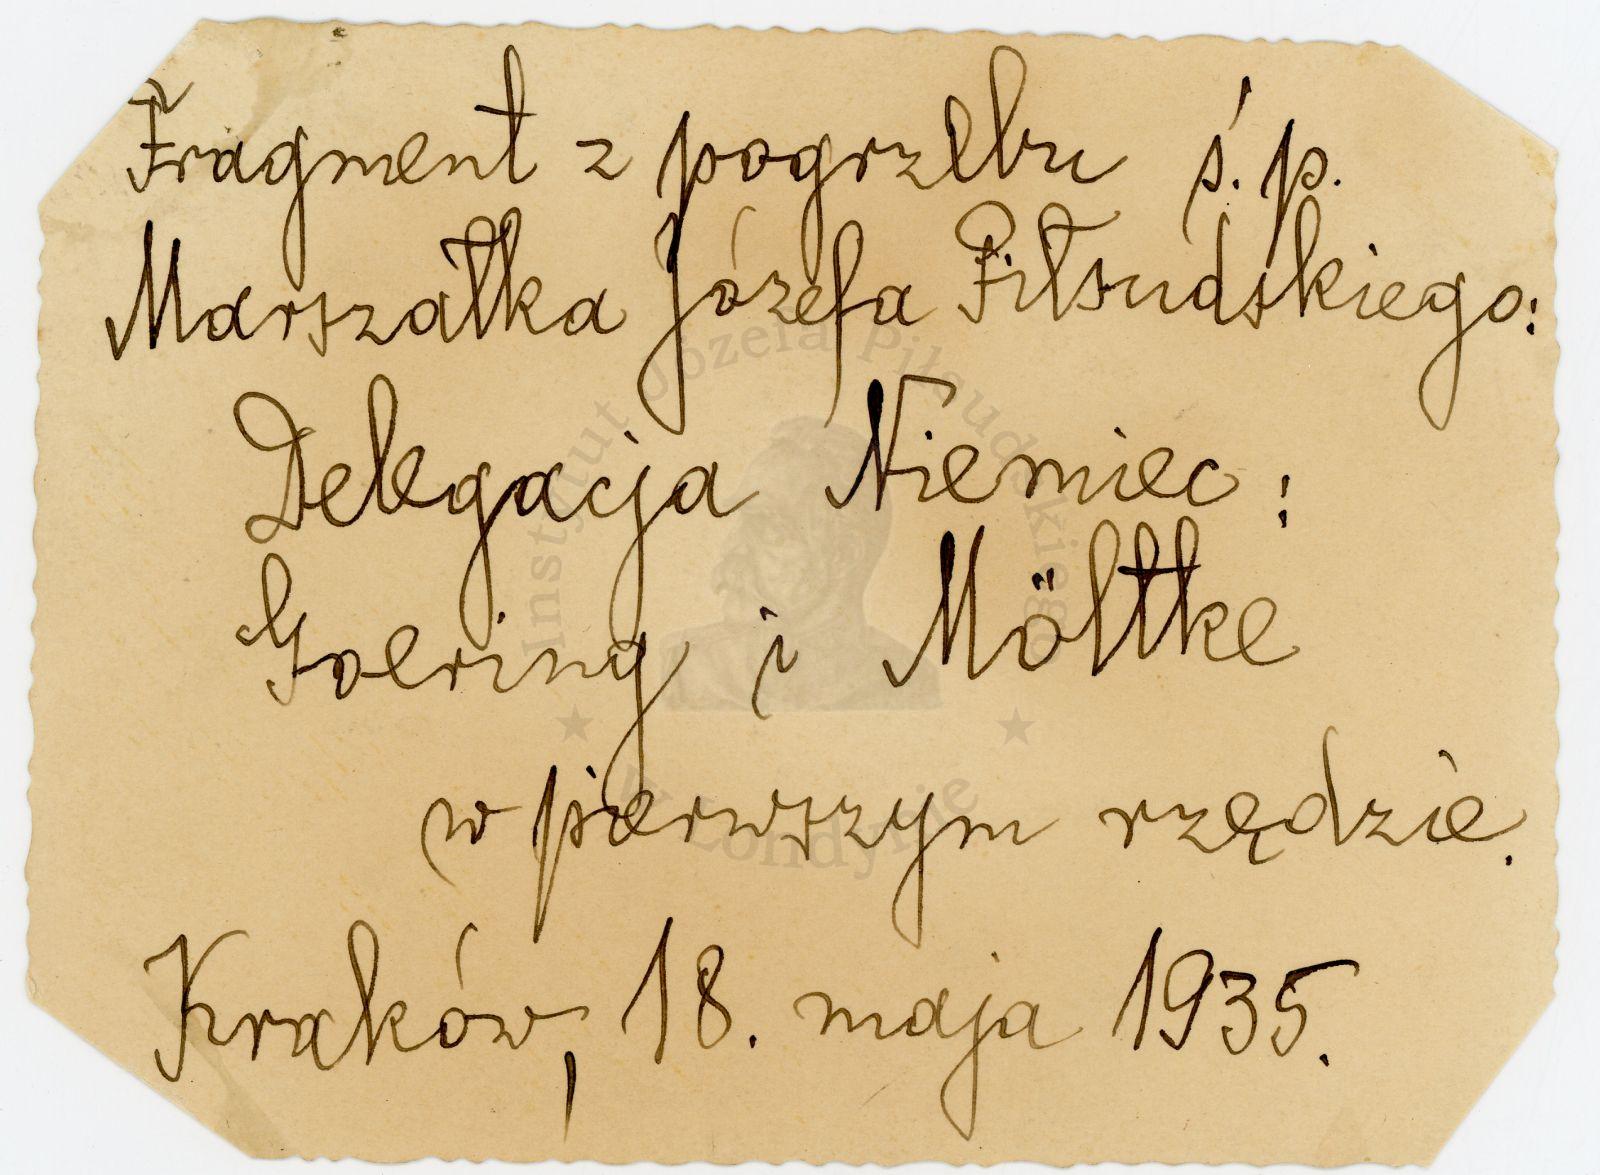 Fragment z pogrzebu ś.p.
Marszałka Józefa Piłsudskiego:
Delegacja Niemiec:
Goering i Möltke
w pierwszym rzędzie.
Kraków, 18. maja 1935.
Instytut Józefa Piłsudskiego
w Londynie